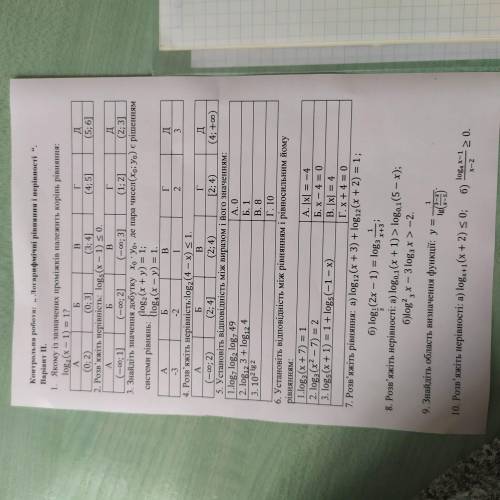 Контрольна робота: „ Логарифмічні рівняння і нерівності “.
Варіант ІІ.
1. Якому із зазначених проміжків належить корінь рівняння:
log₄(x − 1) = 1?
А Б В Г Д
(0; 2) (0; 3) (3; 4) (4; 5) (5; 6]
2. Розв'яжіть нерівність: log₅(x − 1) ≤ 0.
А Б В Г Д
(−∞; 1] (−∞; 2] (−∞; 3] (1; 2] (2; 3]
3. Знайдіть значення добутку x₀ · y₀, де пара чисел(x₀; y₀) є рішенням
системи рівнянь: {log₂(x + y) = 1;
log₄(x − y) = 1.
А Б В Г Д
-3 -2 1 2 3
4. Розв'яжіть нерівність:log₂(4 − x) ≤ 1.
А Б В Г Д
(−∞; 2) [2; 4] (2; 4) [2; 4) (4; +∞)
5. Установіть відповідність між виразом і його значенням:
1.log₇ log₂ log₇ 49 А. 0
2. log₁₂ 3 + log₁₂ 4 Б. 1
3. 10^(2 lg 2) В. 8
Г. 10
6. Установіть відповідність між рівнянням і рівносильним йому
рівнянням:
1.log₃(x + 7) = 1 А. |x| = −4
2. log₃(x² − 7) = 2 Б. x − 4 = 0
3. log₅(x + 1) = 1 + log₅(−1 − x) В. |x| = 4
Г. x + 4 = 0
7. Розв'яжіть рівняння: а) log₁₂(x + 3) + log₁₂(x + 2) = 1;
8. Розв'яжіть нерівності: а) log₀,₁(x + 1) > log₀,₁(5 − x);
б)log²₃ x − 3 log₃ x > −2.
9. Знайдіть область визначення функції:
10. Розв'яжіть нерівності: а) logₓ₊₁(x + 2) ≤ 0;